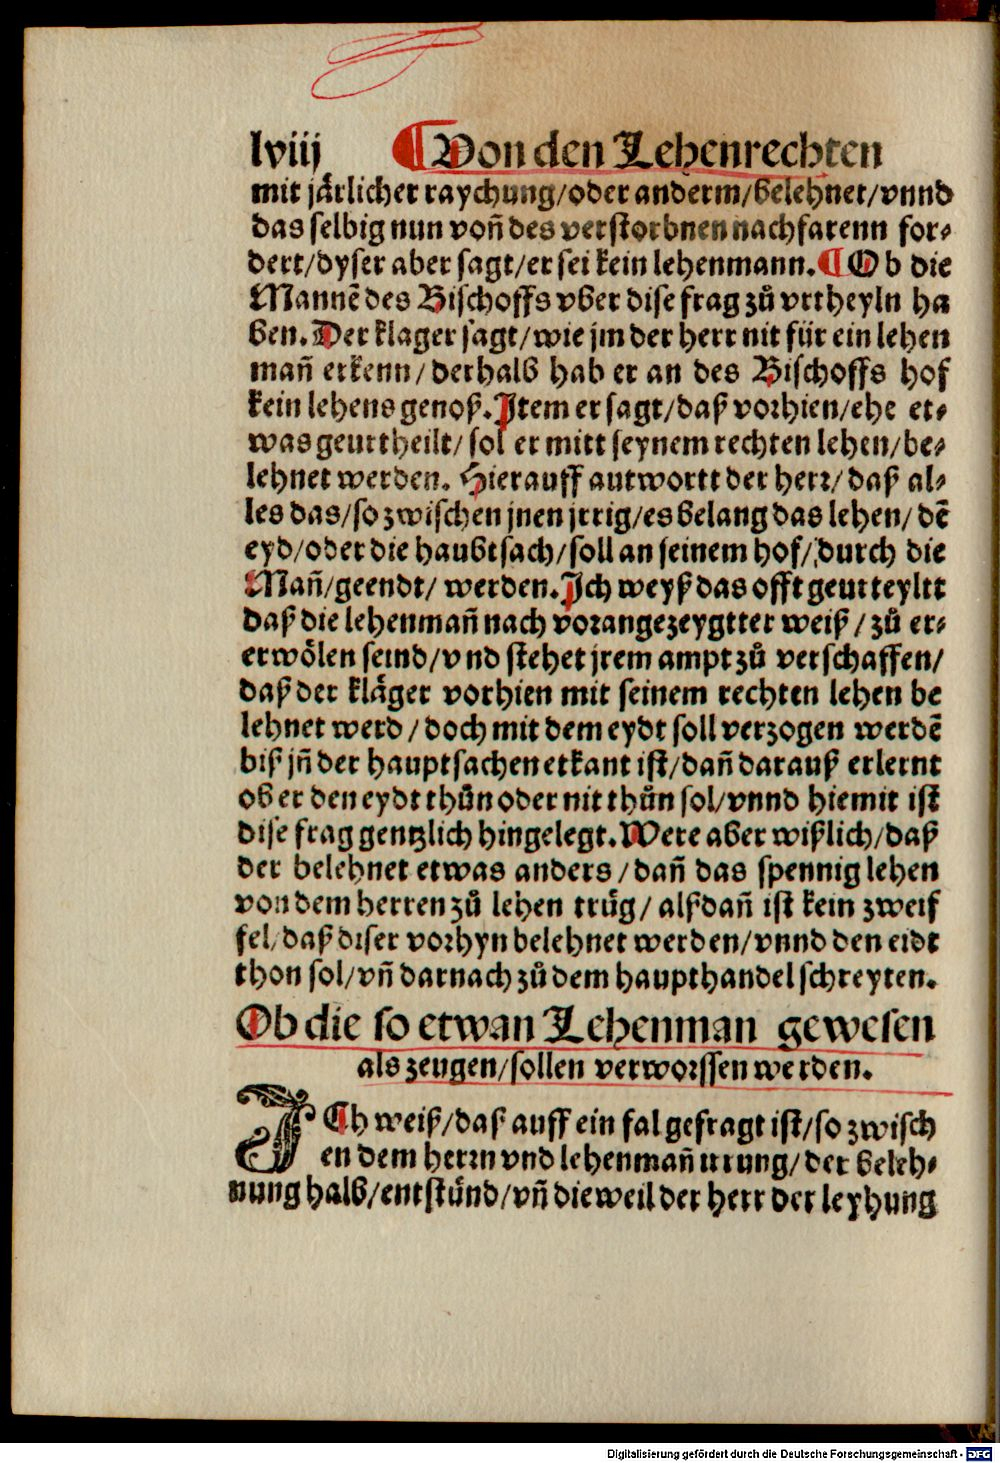 lviij ¶Von den Lehenrechten
mit järlicher raychung/oder anderm/belehnet/vnnd
das selbig nun voñ des verstorbnen nachfarenn for⸗
dert/dyser aber sagt/er sei kein lehenmann.¶Ob die
Mannē des Bischoffs vber dise frag zů vrtheyln ha
ben. Der klager sagt/wie jm der herr nit für ein lehen
mañ erkenn/derhalb hab er an des Bischoffs hof
kein lehens genoß. Jtem er sagt/daß vorhien/ehe et⸗
was geurtheilt/sol er mitt seynem rechten lehen/be⸗
lehnet werden. Hierauff antwortt der herr/daß al⸗
les das/so zwischen jnen jrrig/es belang das lehen/dē
eyd/oder die haubtsach/soll an seinem hof/durch die
Mañ/geendt/werden. Jch weyß das offt geurteyltt
daß die lehenmañ nach vorangezeygtter weiß/zů er⸗
erwölen seind/vnd stehet jrem ampt zů verschaffen/
daß der kläger vorhien mit seinem rechten lehen be
lehnet werd/doch mit dem eydt soll verzogen werdē
biß jñ der hauptsachen erkant ist/dañ darauß erlernt
ob er den eydt thůn oder nit thůn sol/vnnd hiemit ist
dise frag gentzlich hingelegt. Were aber wißlich/daß
der belehnet etwas anders/dañ das spennig lehen
von dem herren zů lehen trüg/alßdañ ist kein zweif
fel/daß diser vorhyn belehnet werden/vnnd den eidt
thon sol/vñ darnach zů dem haupthandel schreyten.
Ob die so etwan Lehenman gewesen
als zeugen/sollen verworssen werden.
JCh weiß/daß auff ein fal gefragt ist/so zwisch
en dem herrn vnd lehenmañ irrung/der beleh⸗
nung halb/entstünd/vñ dieweil der herr der leyhung
Digitalisierung gefördert durch die Deutsche Forschungsgemeinschaft - DFG